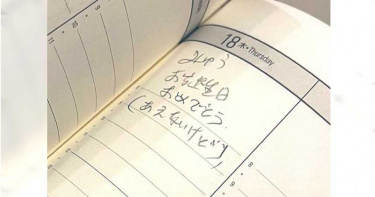 18 木・Thursday
みゆう
お誕生日
おめでとう.
(あえないけどね)